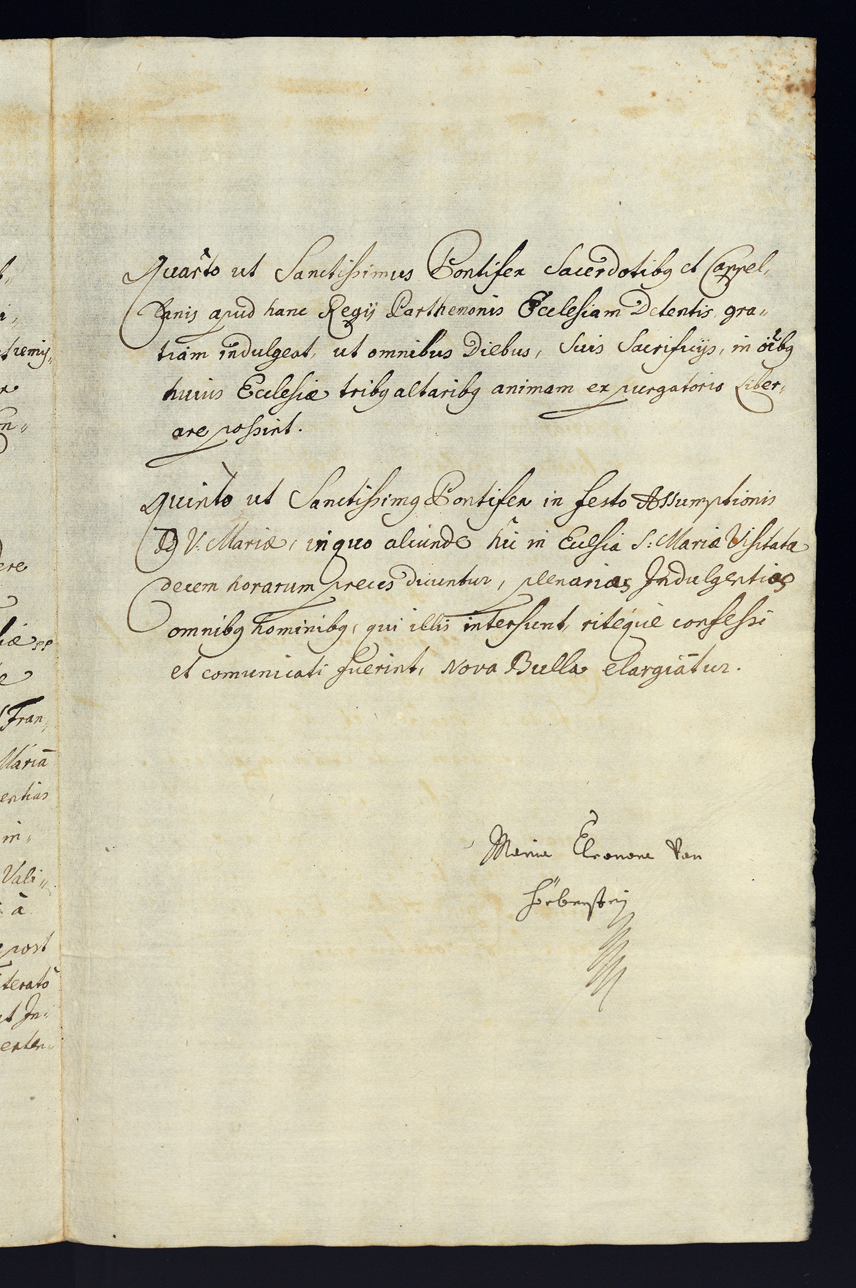 Quarto ut Sanctissimus Pontifex Sacerdotibq et Cappel,
lanis apud hanc Regij Parthenonis Ecclesiam Detentis, gra„
tiam indulgeat, ut omnibus Diebus, Suis Sacrificijs, in oibq
huius Ecclesiæ tribq altaribq animam ex purgatorio Liber,
are possint.
Quinto ut Sanctissimq Pontifex in festo Assumptionis
V. Mariæ, in quo aliunde hic in Eclesia S: Mariæ Visitatæ
decem horarum preces dicuntur, plenarias Indulgentias
omnibq hominibq, qui illis intersunt, riteque confessi
et comunicati fuerint, Nova Bulla elargiatur.
Maria Eleonora Von
tremis,
n„
ere
Fran,
Mariã
entias
in„
Vali„
à
post
iterato
t In„